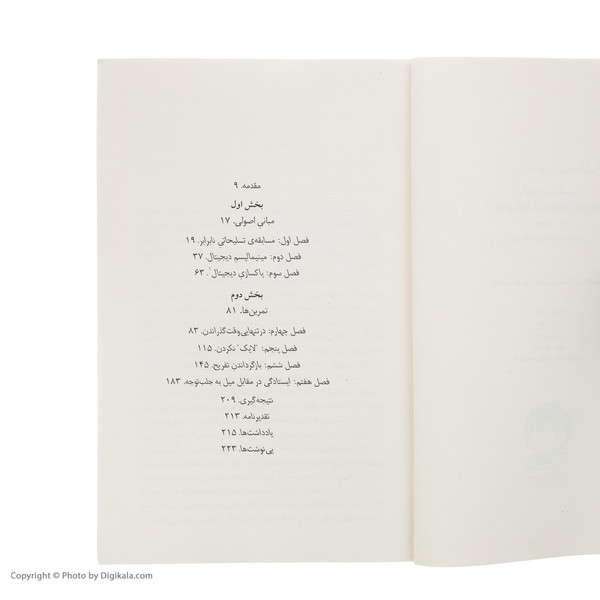 مقدمه. ۹
بخش اول
مبانی اصولی. ۱۷
فصل اول: مسابقه‌ی تسلیحاتی نابرابر. ۱۹
فصل دوم: مینیمالیسم دیجیتال. ۳۷
فصل سوم: پاکسازی دیجیتال۱. ۶۳
بخش دوم
تمرین‌ها. ۸۱
فصل چهارم: در تنهایی وقت گذراندن. ۸۳
فصل پنجم: "لایک" نکردن. ۱۱۵
فصل ششم: بازگرداندن تفریح. ۱۴۵
فصل هفتم: ایستادگی در مقابل میل به جلب‌توجه. ۱۸۳
نتیجه‌گیری. ۲۰۹
تقدیرنامه. ۲۱۳
یادداشت‌ها. ۲۱۵
پی‌نوشت‌ها. ۲۲۳
Copyright © Photo by Digikala.com